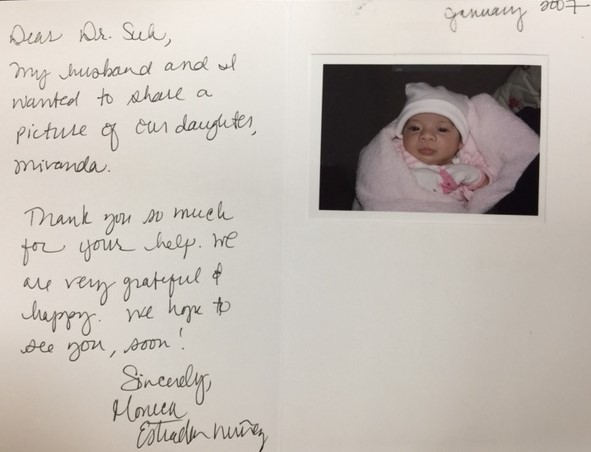 January 2007
Dear Dr. Suh,
My husband and I
wanted to share a
picture of our daughter,
Miranda.
Thank you so much
for your help. We
are very grateful &
happy. We hope to
see you, soon!
Sincerely,
Monica
Estrada Nuñez